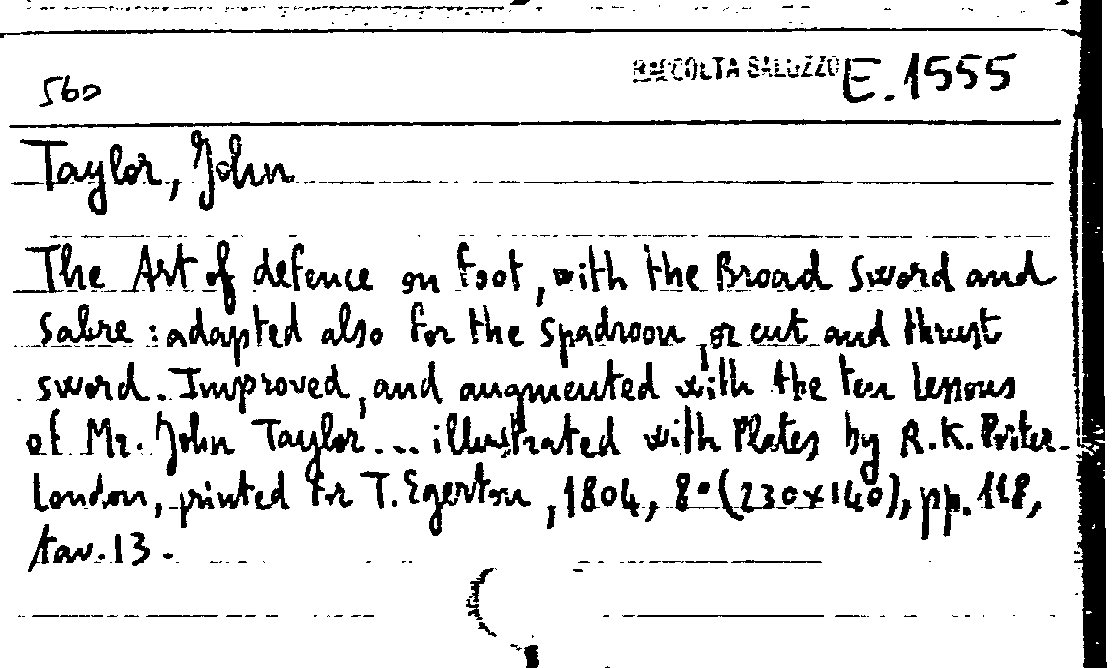 560
RACCOLTA SALUZZO E.1555
Taylor, John
The Art of defence on foot, with the Broad Sword and
Sabre: adapted also for the Spadroon, or cut and thrust
sword. Improved, and augmented with the ten lessons
of Mr. John Taylor... illustrated with Plates by R.K. Porter.
London, printed for T. Egerton, 1804, 8° (230x140), pp. 118,
tav. 13.